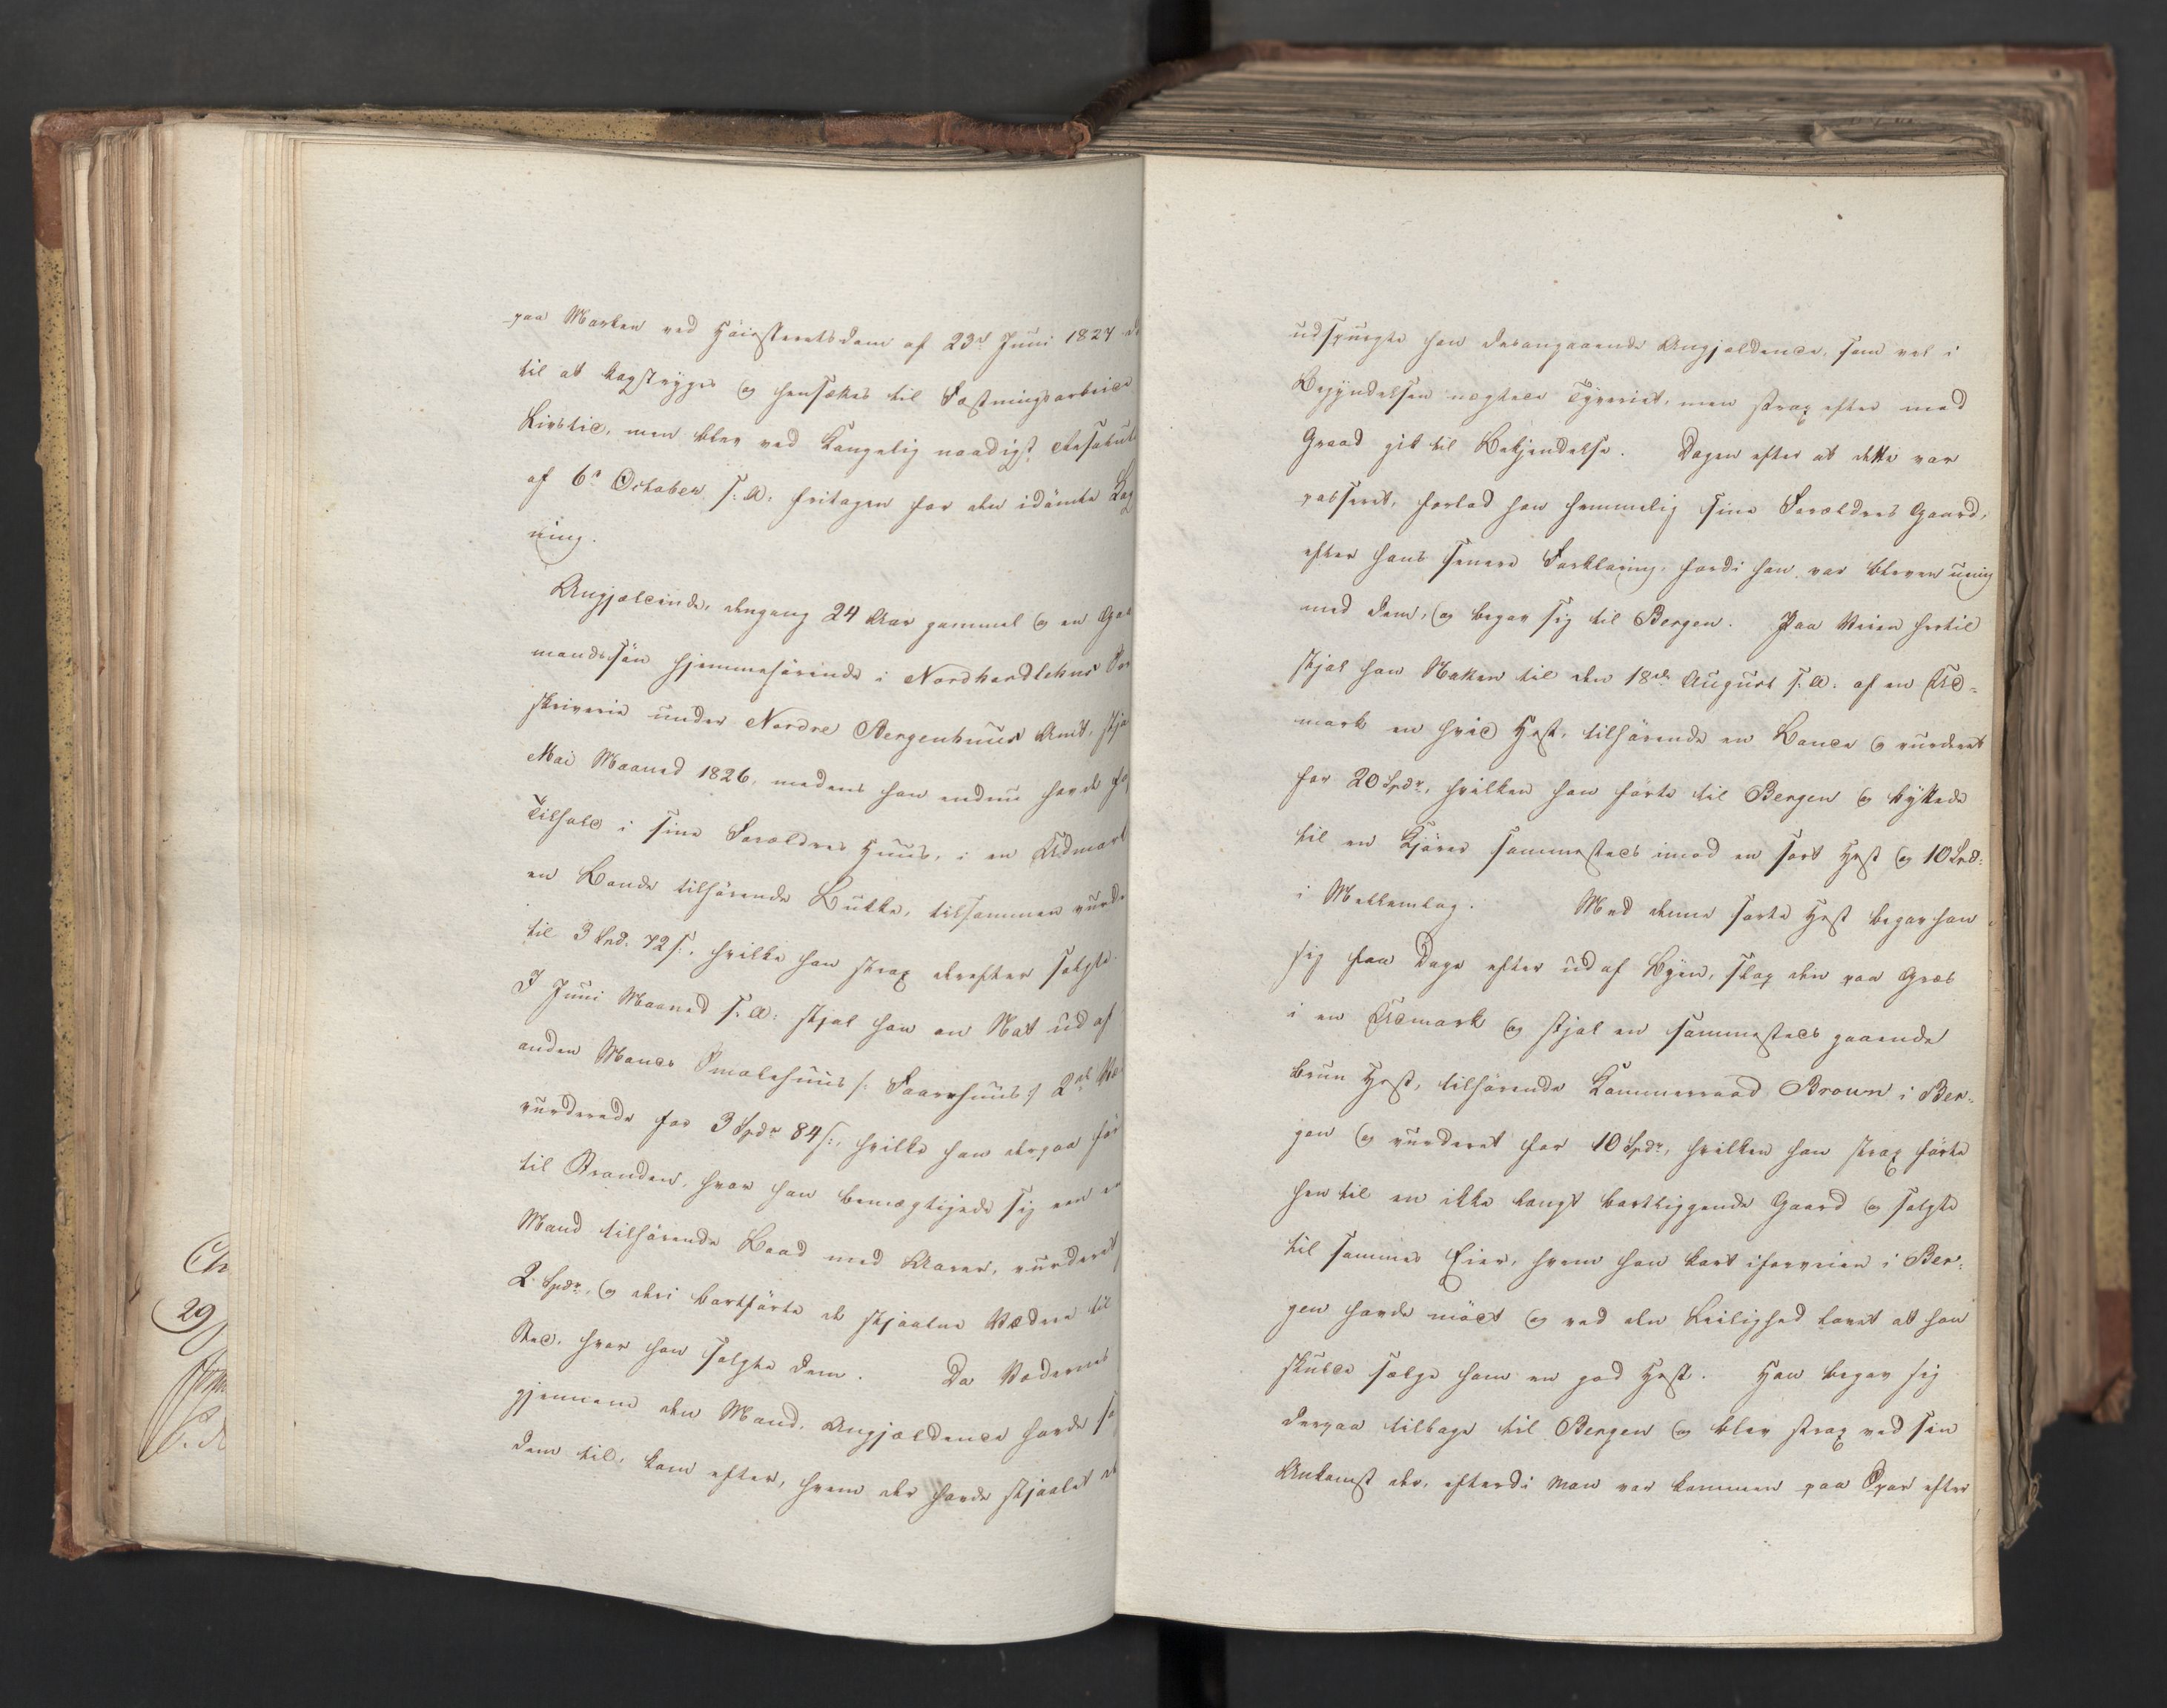 paa Marken ved Høiesteretsdom af 23d Juni 1827 d
til at kagstryges og hensættes til Fæstningsarbeide
Livstid, men blev ved Kongelig naadigst Resolut
af 6te October s: A: fritagen for den idömte Kag
ning.
Angjældende, dengang 24 Aar gammel og en Gaa
mandssön hjemmehörende i Nordhordlehns So
skriverie under Nordre Bergenhuus Amt, stja
Mai Maaned 1826, medens han endnu havde
Tilhold i sine Forældres Huus, i en Udmark
en Bonde tilhörende Bukke, tilsammen vurde
til 3 Spd: 72 s:, hvilke han strax derefter solgte.
I Juni Maaned s: A: stjal han en Nat ud af
anden Mands Smalehuus /: Faarehuus :/ 2de Væ
vurderede for 3 Spdr 84 s:, hvilke han derpaa för
til Stranden, hvor han bemægtigede sig een en
Mand tilhörende Baad med Aarer, vurderet
2 Spdr, og deri bortförte de stjaalne Vædere til
Sted, hvor han solgte dem. Da Vædernes
gjennem den Mand, Angjældende havde so
dem til, kom efter, hvem der havde stjaalet de
Ch
29
udspurgte han desangaaende Angjældende, som vel i
Begyndelsen negtede Tyveriet, men strax efter med
Graad gik til Bekjendelse. Dagen efter at dette var
passeret, forlod han hemmelig sine Forældres Gaard,
efter hans senere Forklaring, fordi han var bleven uenig
med dem, og begav sig til Bergen. Paa Veien hertil
stjal han Natten til den 18de August s: A: af en Ud-
mark en hvid Hest, tilhörende en Bonde og vurderet
for 20 Spdr, hvilken han förte til Bergen og byttede
til en Kjörer sammesteds imod en sort Hest og 10 Spd:
i Mellemlag. Med denne sorte Hest begav han
sig faa Dage efter ud af Byen, slap den paa Græs
i en Udmark og stjal en sammesteds gaaende
brun Hest, tilhörende Kammerraad Brown i Ber-
gen og vurderet for 10 Spdr, hvilken han strax förte
hen til en ikke langt bortliggende Gaard og solgte
til sammes Eier, hvem han kort iforveien i Ber-
gen havde mödt og ved den Leilighed lovet at han
skulde sælge ham en god Hest. Han begav sig
derpaa tilbage til Bergen og blev strax ved sin
Ankomst der, efterdi man var kommen paa Spor efter